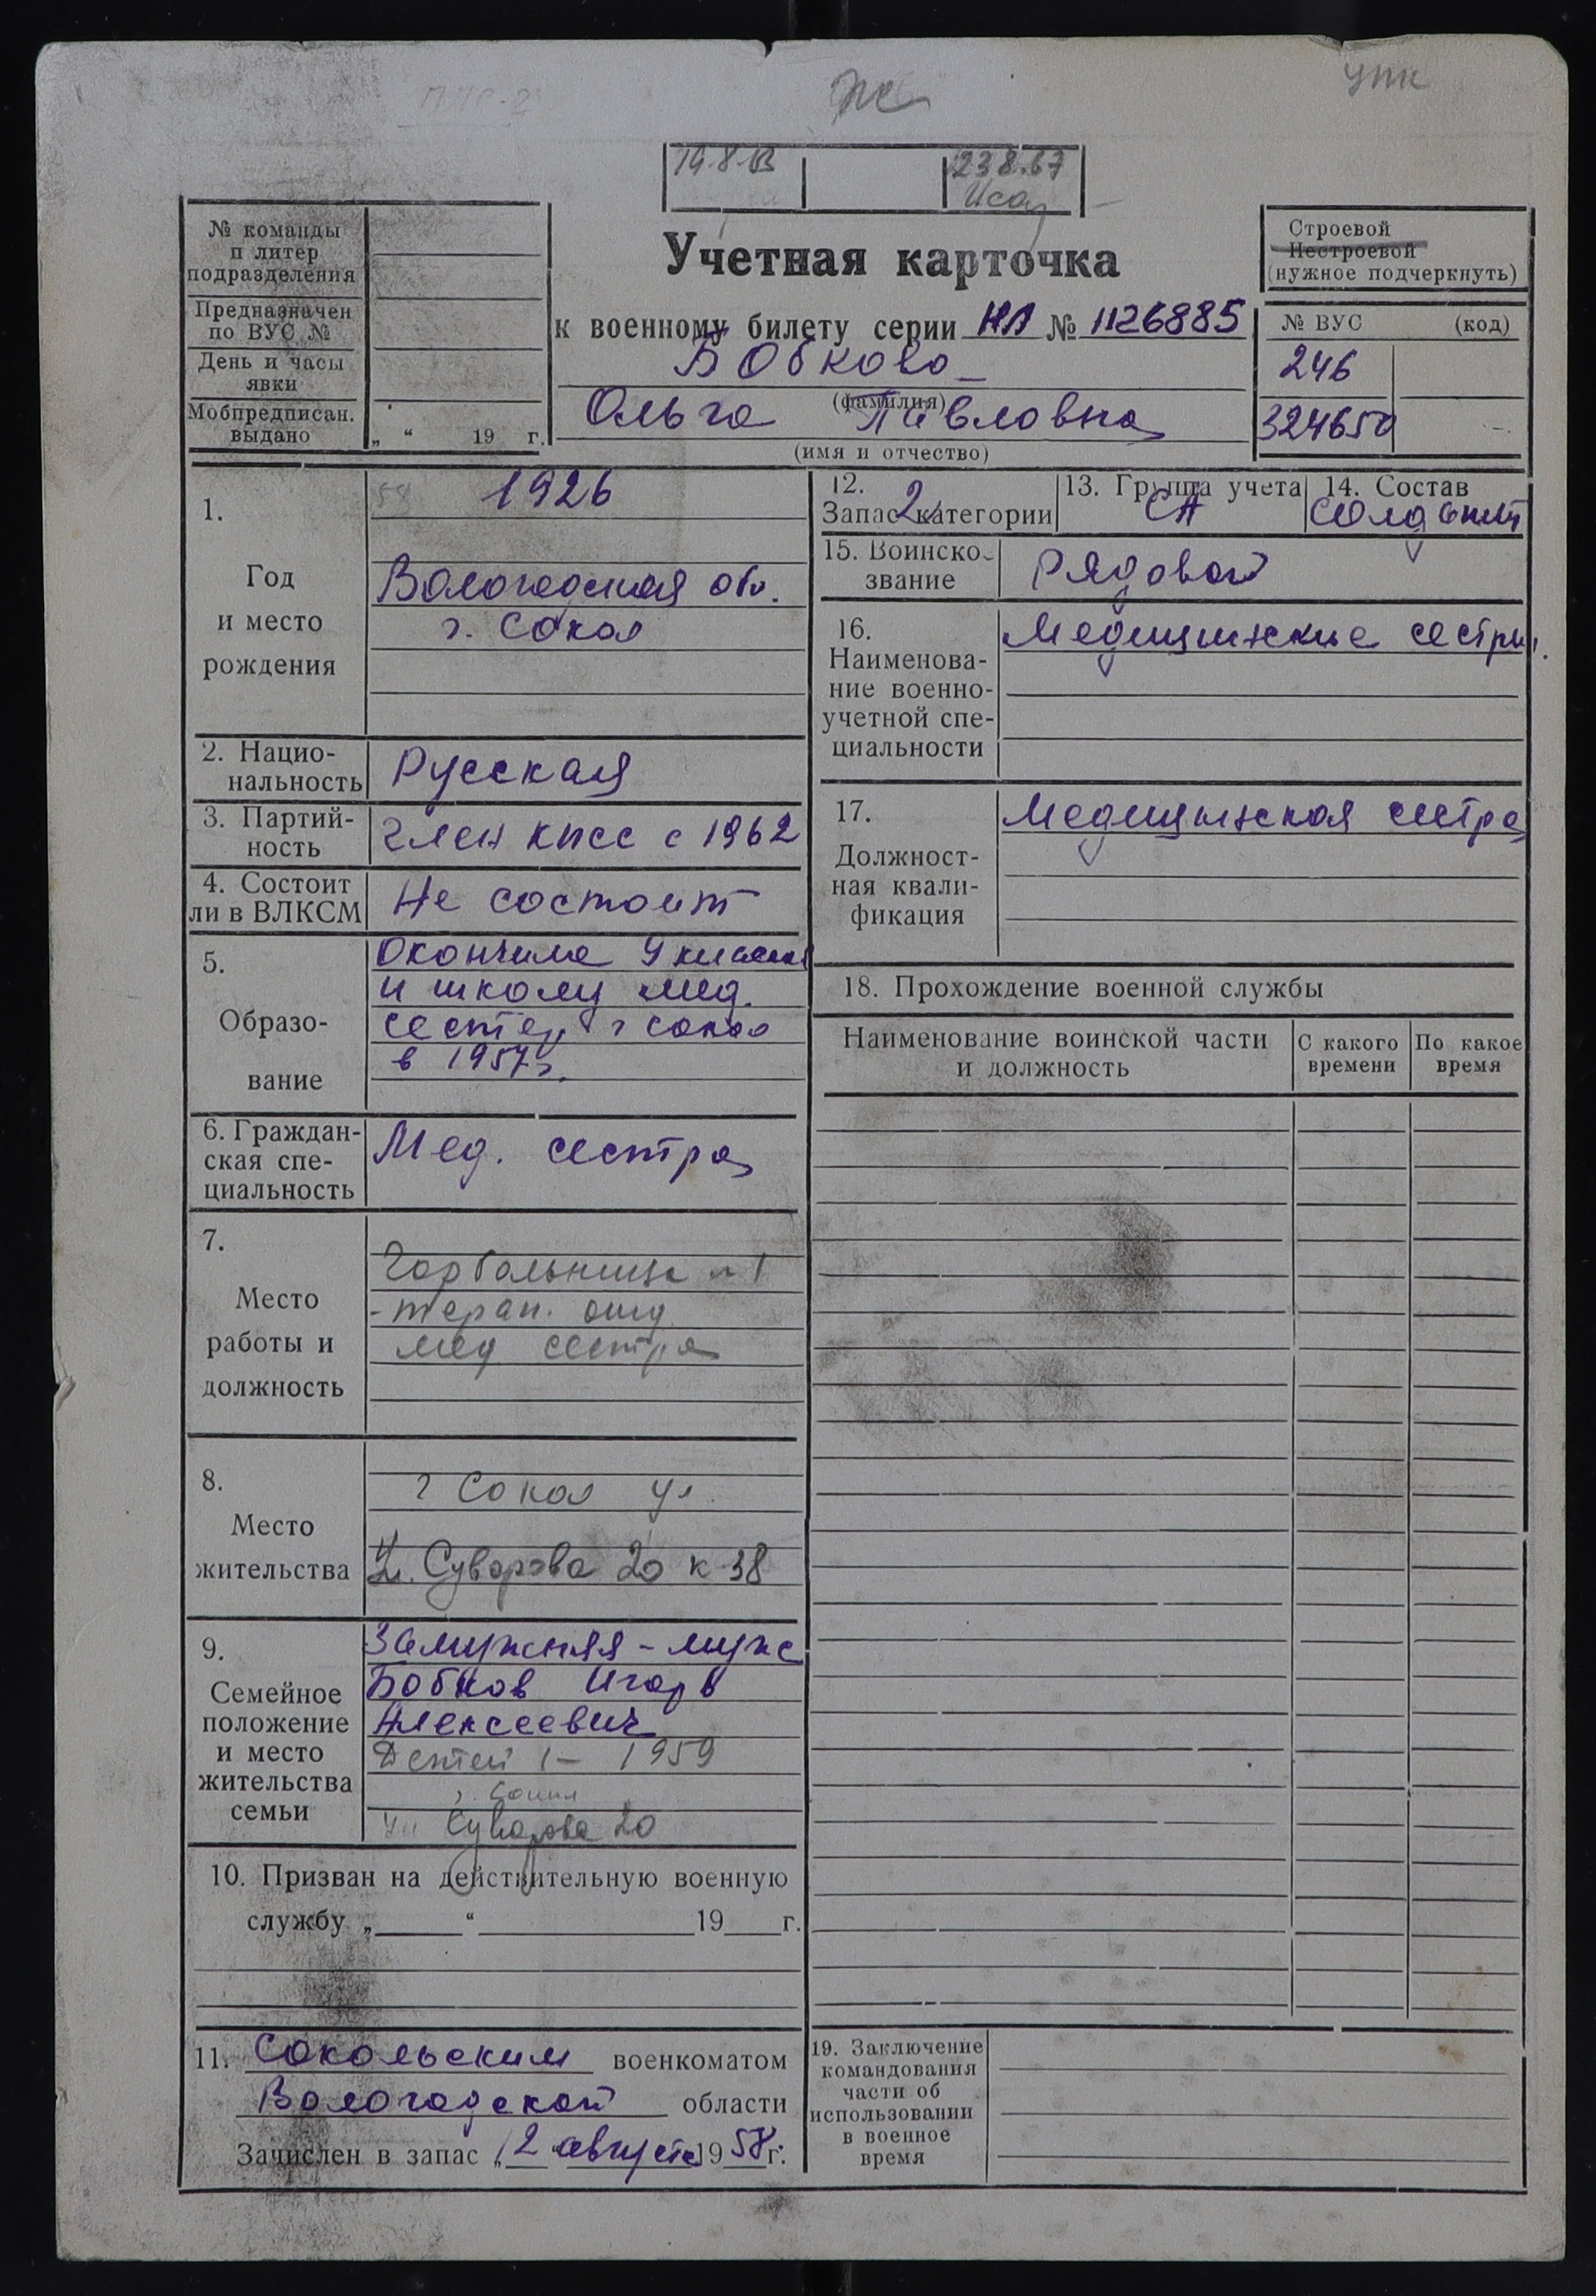 ППС-2
УПК
19.8.
23.8.67
№ команды
п литер
подразделения
Предназначен
по ВУС №
День и часы
явки
Мобпредписан.
выдано
„ “ 19 г.
Учетная карточка
к военному билету серии НЛ № 1126885
Бобкова
(фамилия)
Ольга Павловна
(имя и отчество)
Строевой
Нестроевой
(нужное подчеркнуть)
№ ВУС (код)
246
324650
1.
Год
и место
рождения
1926
Вологодская обл.
г. Сокол
2. Нацио-
нальность
Русская
3. Партий-
ность
член КПСС с 1962
4. Состоит
ли в ВЛКСМ
Не состоит
5.
Образо-
вание
Окончила 9 классов
и школу мед.
сестер г Сокол
в 1957г.
6. Граждан-
ская спе-
циальность
Мед. сестра
7.
Место
работы и
должность
Горбольница №1
-терап. отд
мед сестра
8.
Место
жительства
г Сокол ул.
Ул. Суворова 20 к 38
9.
Семейное
положение
и место
жительства
семьи
Замужняя - муж
Бобков Игорь
Алексеевич
Детей 1 - 1959
г. Сокол
ул Суворова 20
10. Призван на действительную военную
службу „ “ 19 г.
11. Сокольским военкоматом
Вологодской области
Зачислен в запас „12“ августа 1958г.
12.
Запас 2 категории
13. Группа учета
СА
14. Состав
Солдат
15. Воинско
звание
Рядовой
16.
Наименова-
ние военно-
учетной спе-
циальности
Медицинские сестры.
17.
Должност-
ная квали-
фикация
Медицинская сестра
18. Прохождение военной службы
Наименование воинской части
и должность
С какого
времени
По какое
время
19. Заключение
командования
части об
использовании
в военное
время